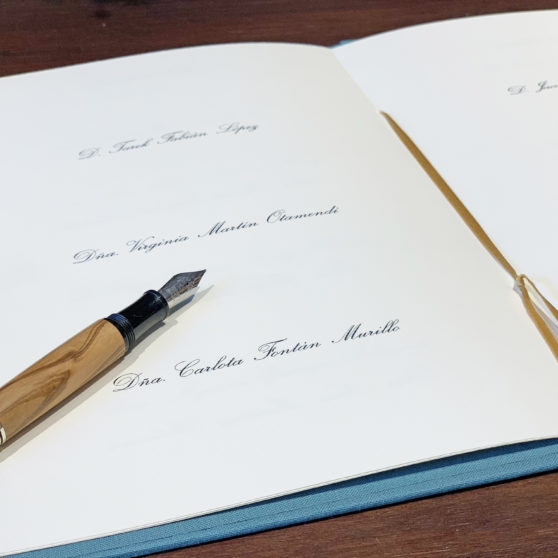 D. Tarek Fabián López
Dña. Virginia Martín Otamendi
Dña. Carlota Fontán Murillo
D.